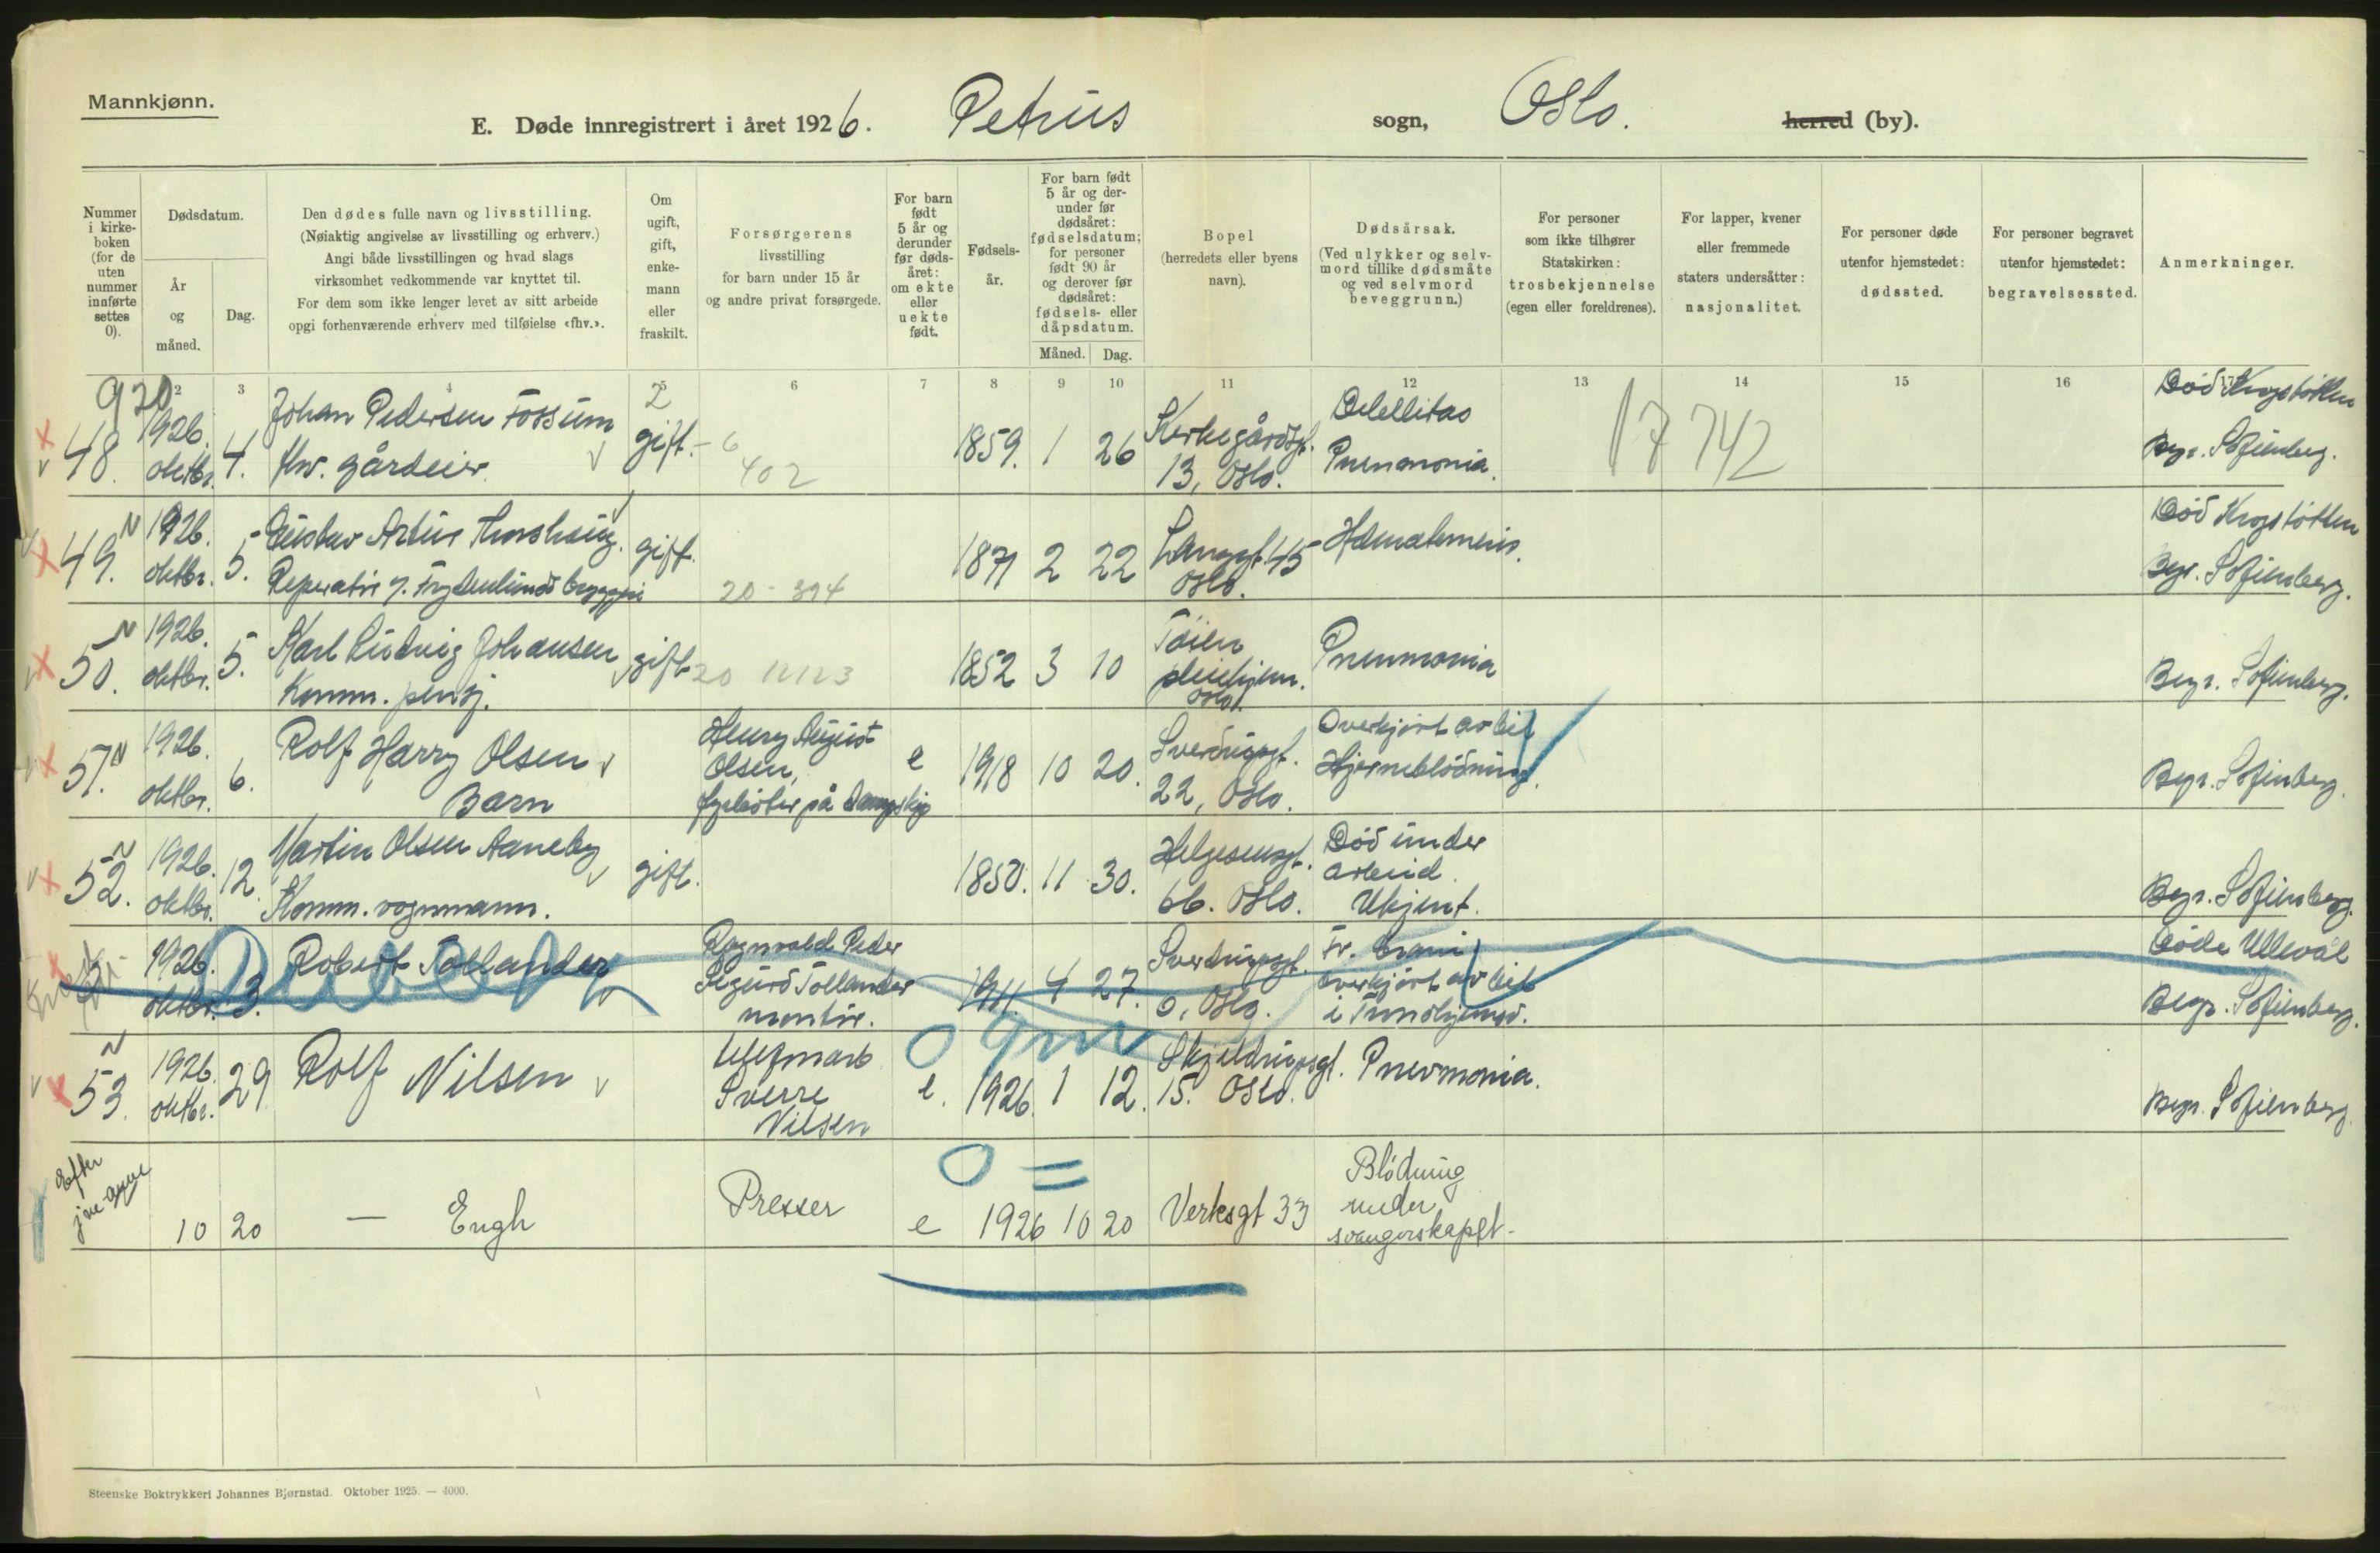 Mannkjønn.
E. Døde innregistrert i året 1926. Petrus sogn, Oslo. herred (by).
Nummer i kirke-boken (for de uten nummer innførte settes 0).
Dødsdatum.
År og måned.
Dag.
Den dødes fulle navn og livsstilling.
(Nøiaktig angivelse av livsstilling og erhverv.)
Angi både livsstillingen og hvad slags
virksomhet vedkommende var knyttet til.
For dem som ikke lenger levet av sitt arbeide
opgi forhenværende erhverv med tilføielse «fhv.».
Om ugift, gift, enke-mann eller fraskilt.
Forsørgerens
livsstilling
for barn under 15 år
og andre privat forsørgede.
For barn født 5 år og derunder før døds-året: om ekte eller uekte født.
Fødsels-år.
For barn født 5 år og der-under før dødsåret: fødselsdatum; for personer født 90 år og derover før dødsåret: fødsels- eller dåpsdatum.
Måned. Dag.
Bopel
(herredets eller byens
navn).
Dødsårsak.
(Ved ulykker og selv-
mord tillike dødsmåte
og ved selvmord
beveggrunn.)
For personer
som ikke tilhører
Statskirken:
trosbekjennelse
(egen eller foreldrenes).
For lapper, kvener
eller fremmede
staters undersåtter:
nasjonalitet.
For personer døde
utenfor hjemstedet:
dødssted.
For personer begravet
utenfor hjemstedet:
begravelsessted.
Anmerkninger.
2 3 4 5 6 7 8 9 10 11 12 13 14 15 16 17
920
2
48. 1926. oktbr. 4. Johan Pedersen Fossum fhv. gårdeier. gift. 6 402 1859. 1 26 Kirkegårdsgt. 13, Oslo. Debilitas Pneumonia. 17 742 Død Krogstøtten Begr. Sofienberg.
49. N 1926. oktbr. 5. Gustav Artur Thorshaug. Reperatør v. Frydenlunds bryggeri gift. 20 - 394 1871 2 22 Langgt. 45 Oslo. Hæmatemesis. Død Krogstøtten Begr. Sofienberg.
50. N 1926. oktbr. 5. Karl Ludvig Johansen Komm. pensj. gift 20 1852 3 10 Tøien pleiehjem. Oslo. Pneumonia Begr. Sofienberg.
51. N 1926. oktbr. 6. Rolf Harry Olsen Barn Henry August Olsen, fyrbøter på dampskip e 1918 10 20. Sverdrupsgt. 22, Oslo. Overkjørt av bil Hjerneblødning. Begr. Sofienberg.
52. N 1926. oktbr. 12. Martin Olsen Aaneby Komm. vognmann. gift. 1850. 11 30. Helgesensgt. 66. Oslo. Død under arbeid. Ukjent. Begr. Sofienberg.
1926. oktbr. 3. Robert Tollander Ragnvald Peder Sigurd Tollander montør. 1911. 4 27. Sverdrupsgt. 0, Oslo. Fr. crani overkjørt av bil i Trondhjemsv. Døde Ullevål Begr. Sofienberg.
53. N 1926. oktbr. 29 Rolf Nilsen Sverre Nilsen e. 1926. 1 12. Skjeldrupsgt. 15. Oslo. Pnevmonia. Begr. Sofienberg
Efter
10 20 — Engh Presser e 1926 10 20 Verksgt 33 Blødning under svangerskapet -
Steenske Boktrykkeri Johannes Bjørnstad. Oktober 1925. — 4000.